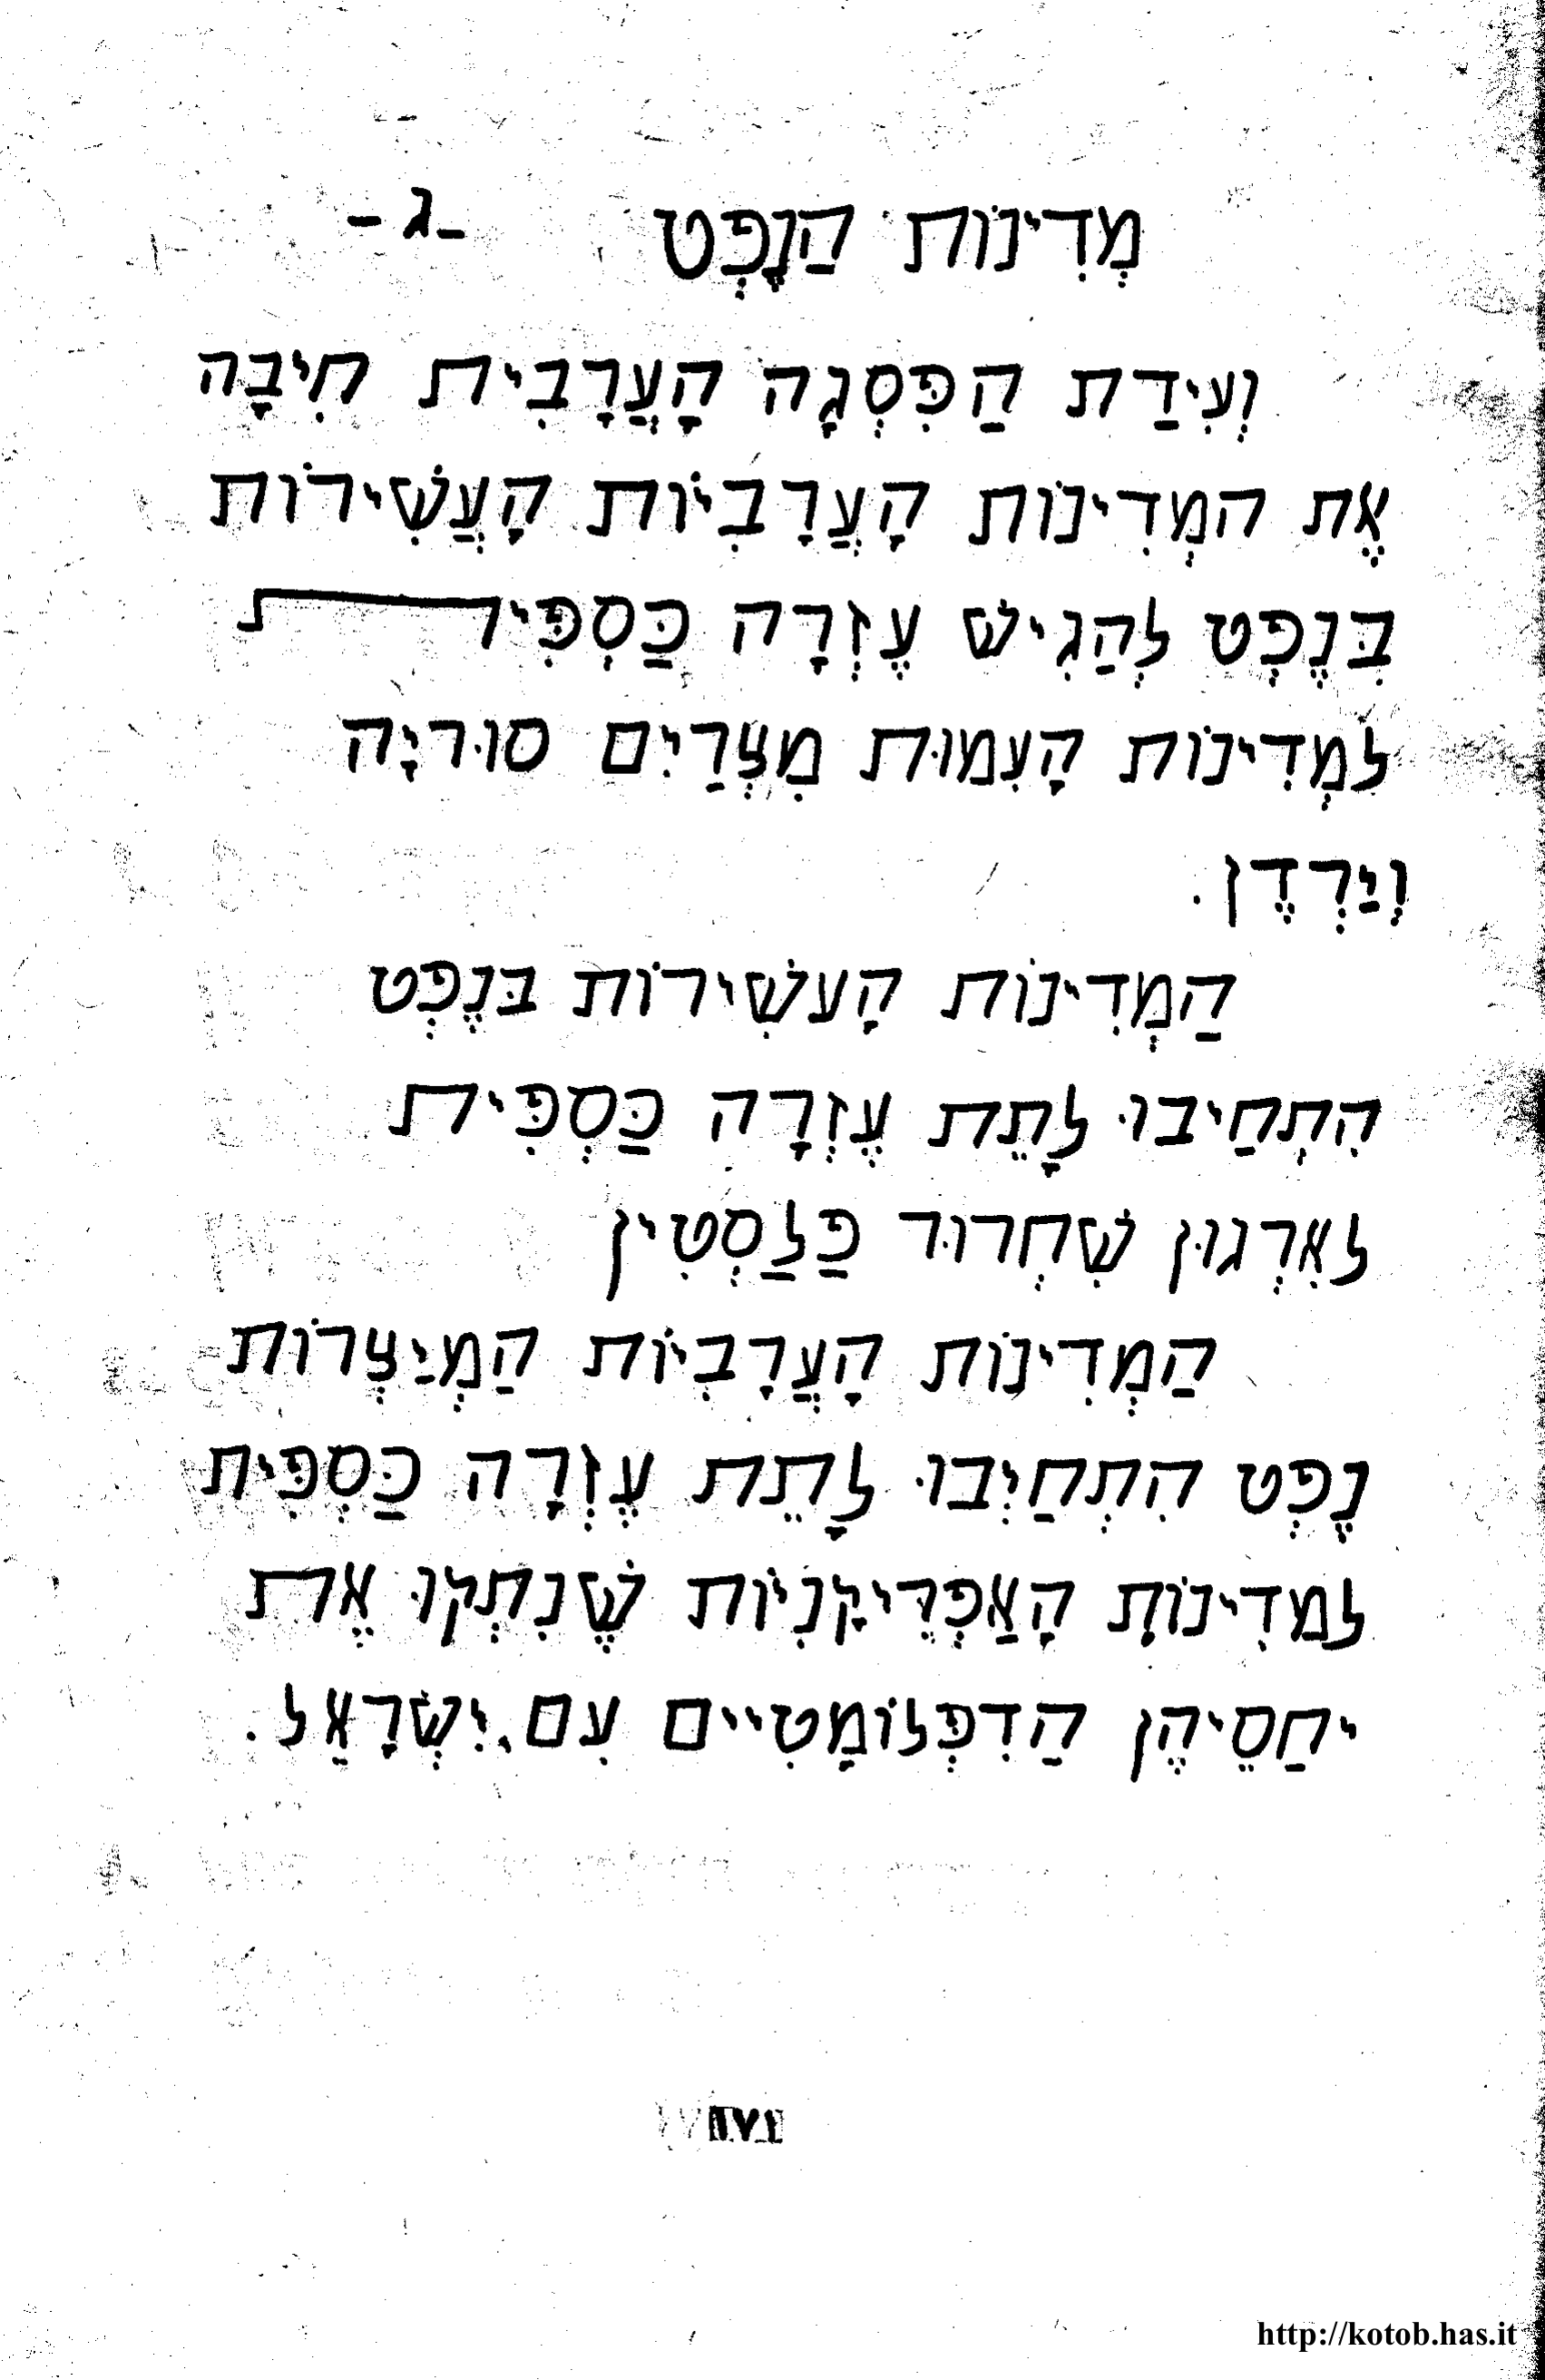 מְדִינוֹת הַנֶפְט -ג-
וְעִידַת הַפִּסְגָה הָעֲרָבִית חִיבָה
אֶת המְדִינוֹת הָעֲרָבִיוֹת הָעֲשִׁירוֹת
בְּנֶפְט לְהַגִישׁ עֶזְרָה כַּסְפִּית
לִמְדִינוֹת הָעִמוּת מִצְרַיִם סוּריָה
וְיַרְדֶן.
הַמְדִינוֹת הָעשִׁירוֹת בּנֶפְט
הִתְחַיבוּ לָתֵת עֶזְרָה כַּסְפִּית
לאִרְגוּן שִׁחְרוּר פַלַסְטִין
הַמְדִינוֹת הָעֲרָבְיוֹת הַמְיַצְרוֹת
נֶפְט הִתְחַיְבוּ לָתֵת עֶזְרָה כַּסְפִּית
למדִינוֹת הָאַפְרִיקָנִיוֹת שֶׁנִתְקוּ אֶת
יחַסֵיהֶן הַדִפְלוֹמָטִיים עִם יִשְׂרָאֵל.
١٧١
http://kotob.has.it